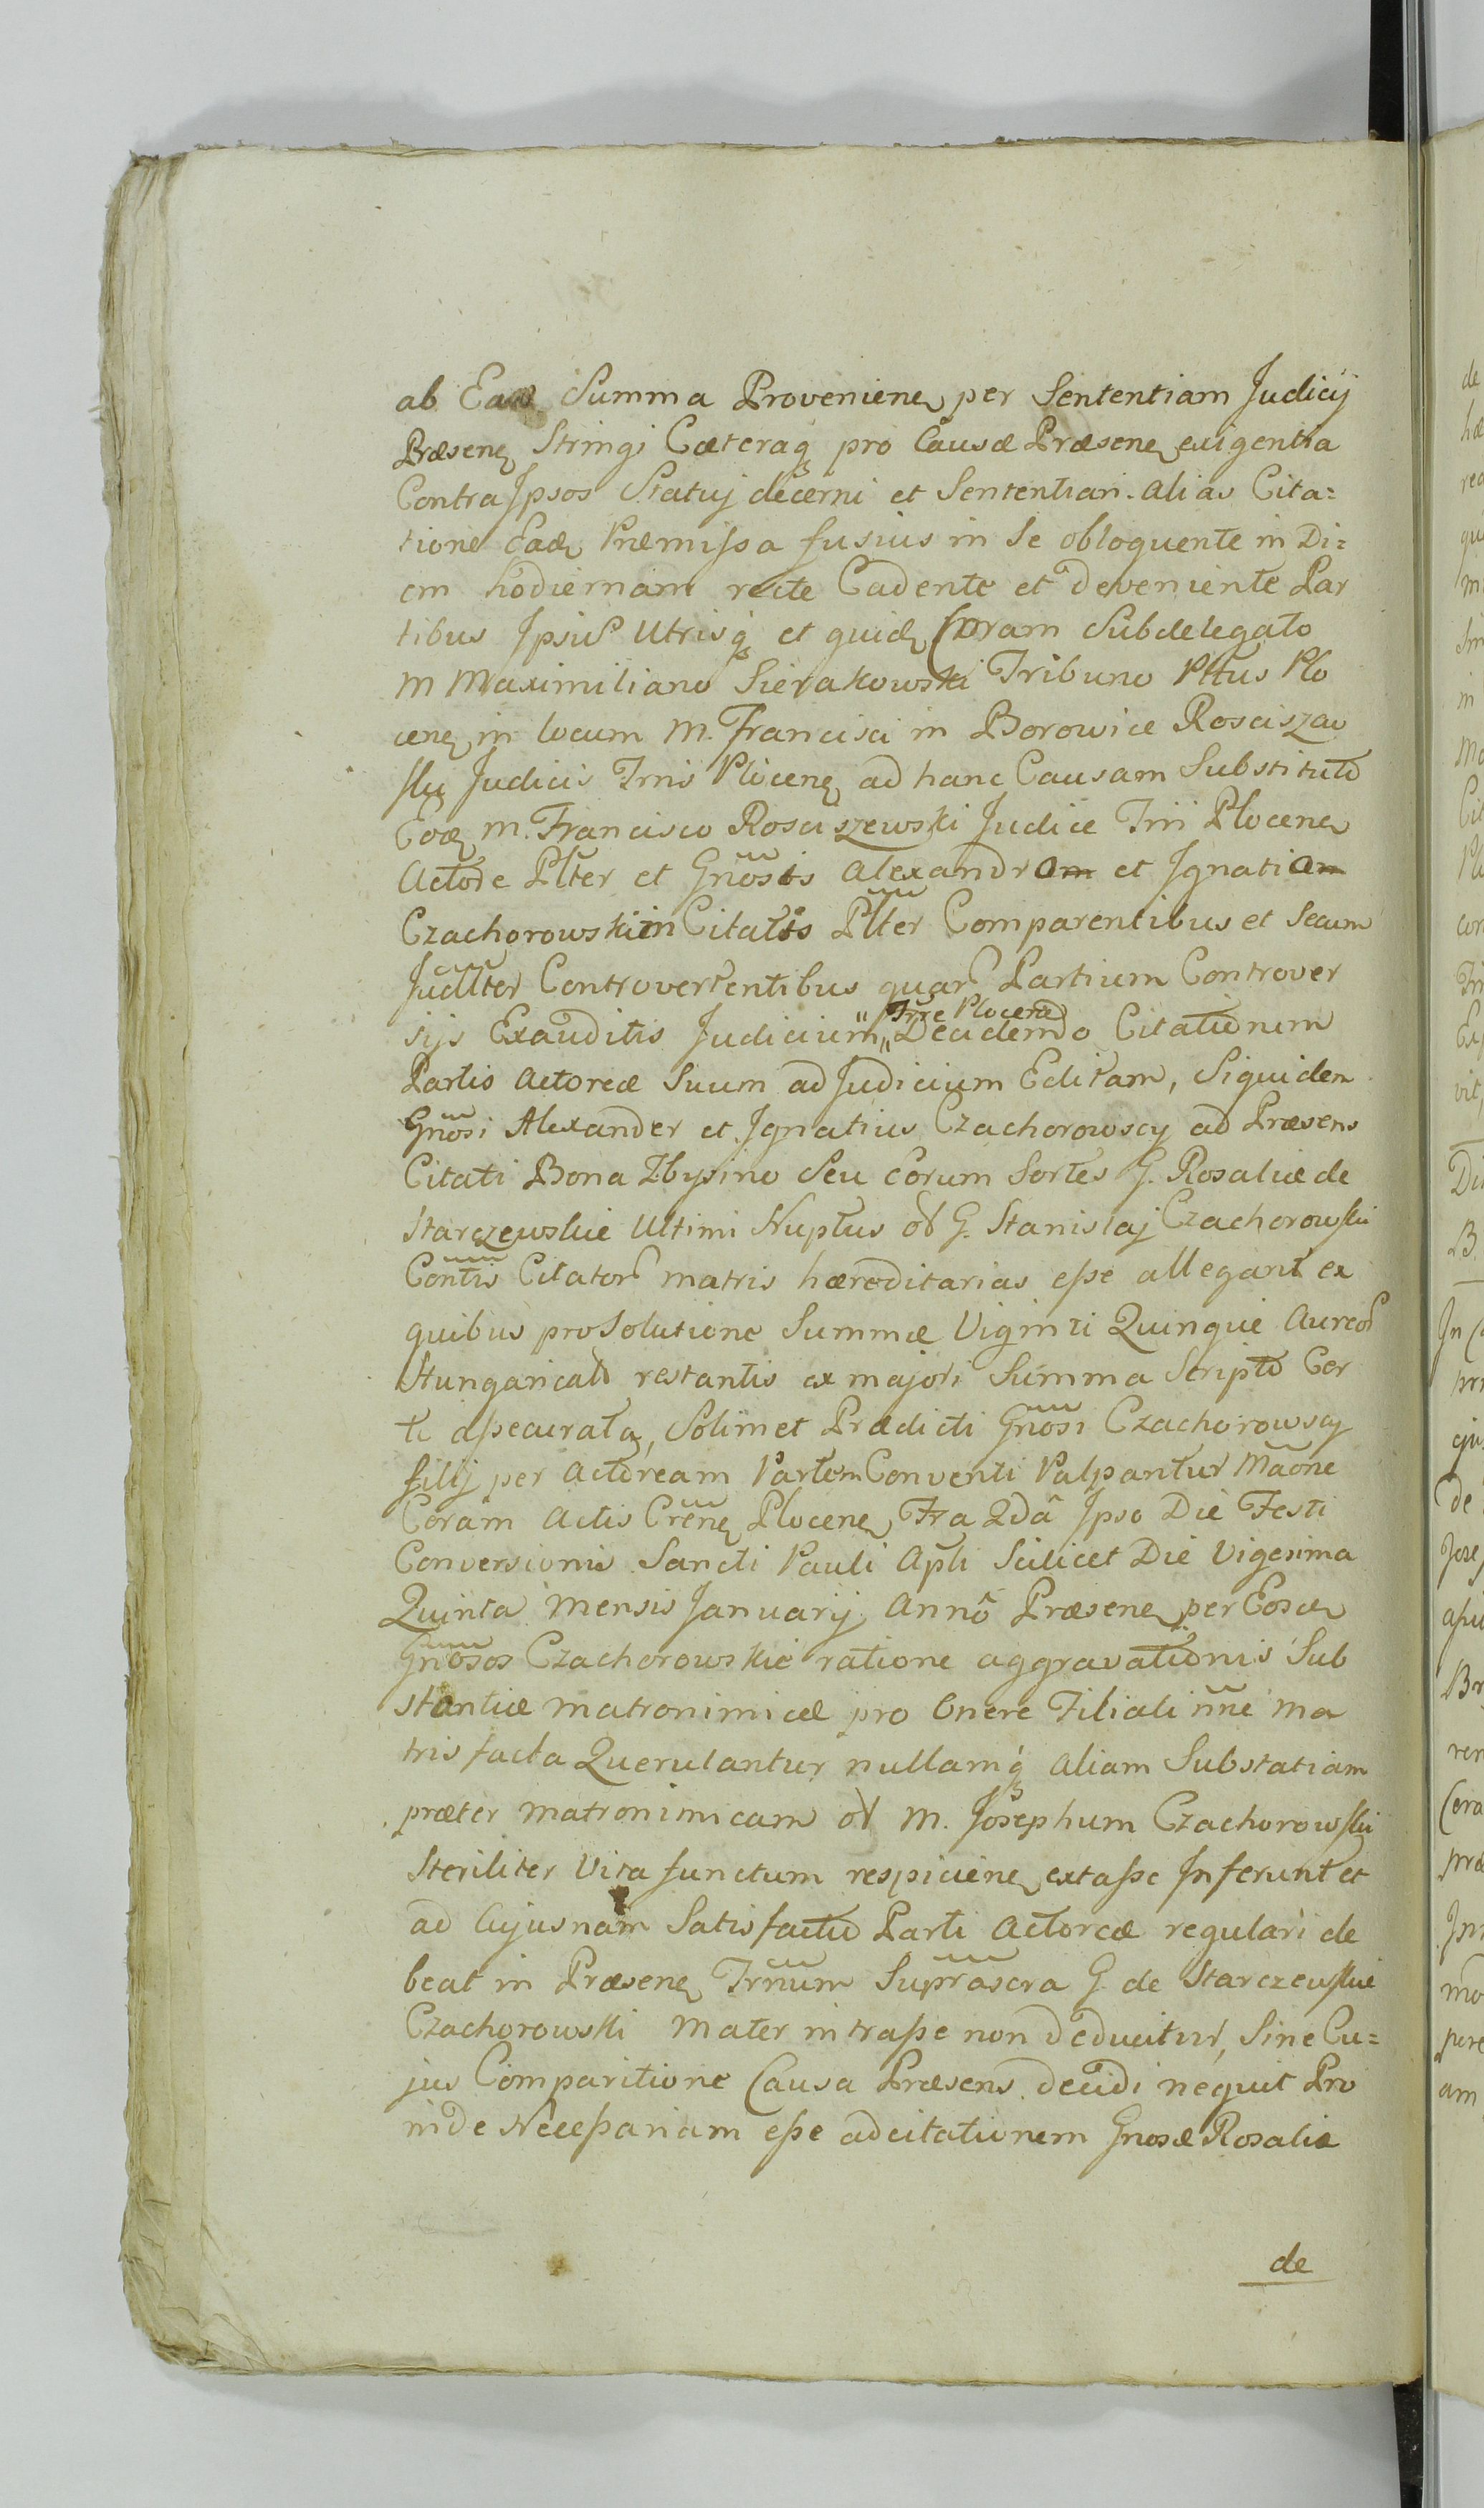 ab Ead Summa Provenienꝫ per Sententiam Judicij
Præsenꝫ Stringi Cæteraq pro Causæ Præsenꝫ exigentia
Contra Ipsos Statuj decerni et Sententiari. Alias Cita=
tione Eadꝫ Præmissa fusius in se obloquente in Di=
em hodiernam recte Cadente et deveniente Par
tibus Ipsius Utrisq et quidꝫ Coram Subdelegato
M Maximiliano Sierakowski Tribuno Pttus Plo
cenꝫ in locum M. Francisci in Borowice Rosciszew
ski Judicis Trris Plocenꝫ ad hanc Causam Substituto
Eodꝫ M. Francisco Rosciszewski Judice Trrii Plocenꝫ
Actore Plter et Gnosis Alexandrom et Ignatiom
Czachorowskiin Citatis Plter Comparentibus et Secum
Judlter Controvertentibus quar Partium Controver
sijs Exauditis Judicium „ Trre Plocenꝫ
Decidendo Citationem
Partis Actoreæ Suum ad Judicium Editam, Siquidem
Gnosi Alexander et Ignatius Czachorowscy ad Præsens
Citati Bona Zbysino Seu eorum Sortes G. Rosaliæ de
Starczewskie Ultimi Nuptus ol G. Stanislaj Czachorowski
Contis Citator matris hæreditarias esse allegant ex
quibus pro Solutione Summæ Viginti Quinque Aureor
Hungarical restantis ex majori Summa Scripto Cer
to assecuratæ, Solimet Prædicti Gnosi Czachorowscy
filij per Actoream Partem Conventi Palpantur Maone
Coram Actis Crenꝫ Plocenꝫ Fra 2dâ Ipso Die Festi
Conversionis Sancti Pauli Apli Scilicet Die Vigesima
Quinta Mensis Januarij Anno Præsenꝫ per Eosdꝫ
Gnosos Czachorowskie ratione aggravationis Sub
stantiæ matronimicæ pro Onere Filiali nne Ma
tris facta Querulantur nullamq aliam Substatiam
præter matronimicam ol M. Josephum Czachorowski
Steriliter Vita functum respicienꝫ extasse Inferunt et
ad Cujusnam Satisfactio Parti Actoreæ regulari de
beat in Præsenꝫ Trnum Suprascra G. de Starczewskie
Czachorowski Mater intrasse non deducitur, Sine Cu=
jus Comparitione Causa Præsens decidi nequit Pro
inde Necessariam esse adcitationem Gnosæ Rosaliæ
de